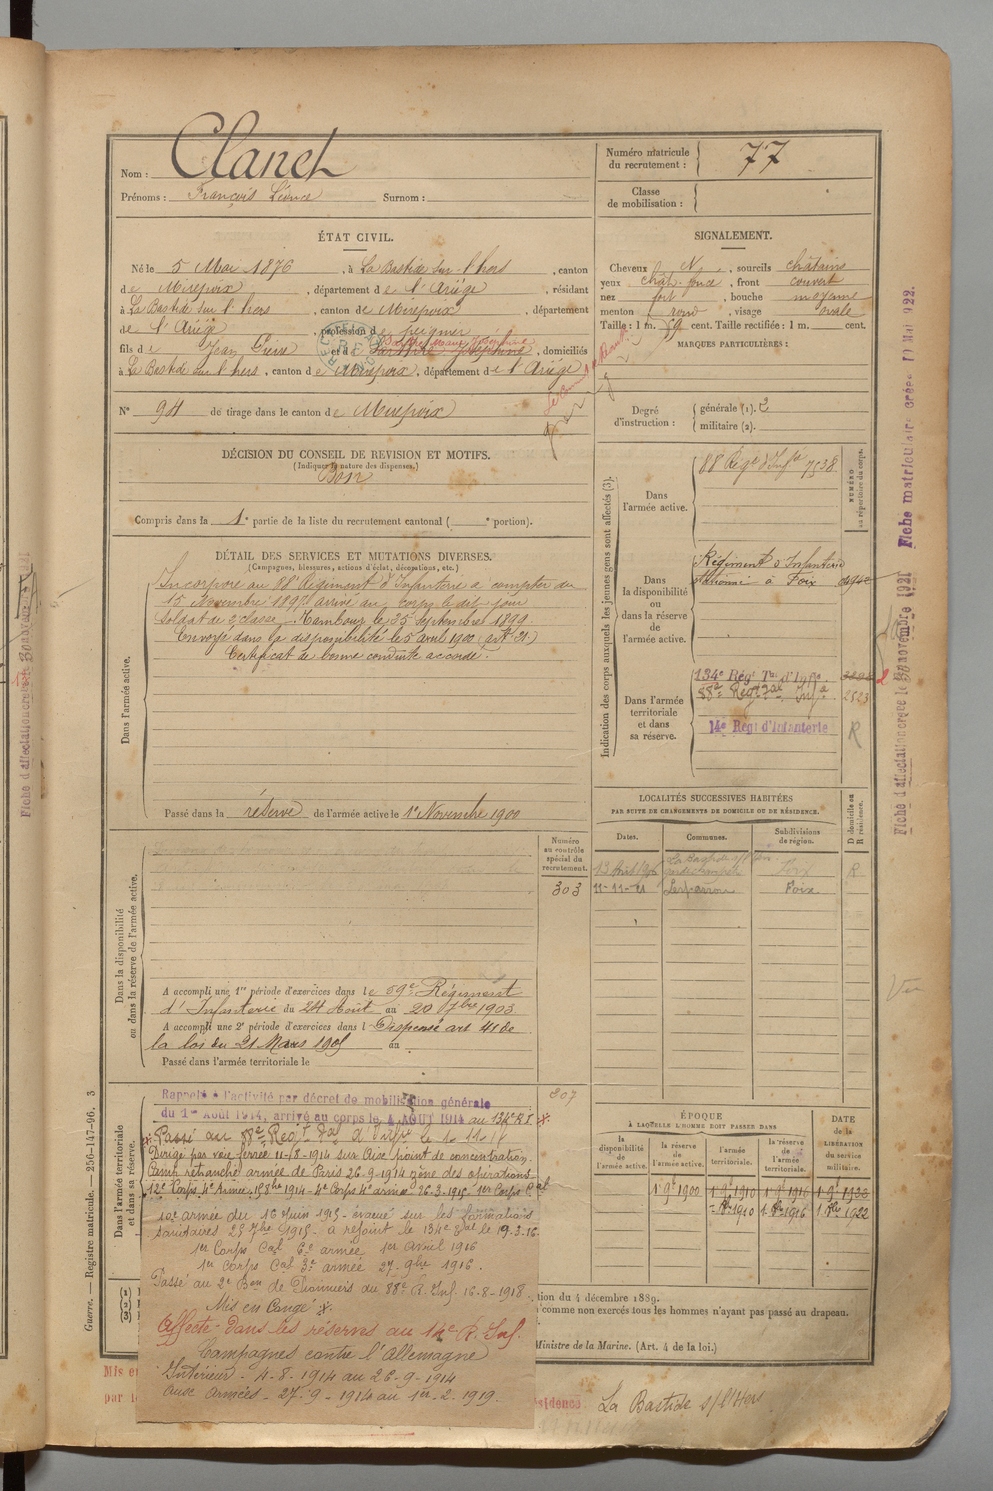 Nom : Clanet
Prénoms : François Léonce Surnom :
Numéro matricule du recrutement : 77
Classe de mobilisation :
ÉTAT CIVIL.
Né le 5 Mai 1876, à La Bastide sur l'hers, canton
de Mirepoix, département de l'Ariège, résidant
à La Bastide sur l'hers, canton de Mirepoix, département
de l'Ariège, profession de peigneur
fils de Jean Pierre et de Joséphine, domiciliés
à La Bastide sur l'hers, canton de Mirepoix, département de l'Ariège
N° 94 de tirage dans le canton de Mirepoix
SIGNALEMENT.
Cheveux N, sourcils châtains
yeux chât. foncé, front couvert
nez fort, bouche moyenne
menton rond, visage ovale
Taille : 1 m. 59 cent. Taille rectifiée : 1 m. cent.
MARQUES PARTICULIÈRES :
Degré d'instruction : générale (1). 2
militaire (2).
DÉCISION DU CONSEIL DE REVISION ET MOTIFS.
(Indiquer la nature des dispenses.)
Bon
Compris dans la 1e partie de la liste du recrutement cantonal ( e portion).
DÉTAIL DES SERVICES ET MUTATIONS DIVERSES.
(Campagnes, blessures, actions d'éclat, décorations, etc.)
Dans l'armée active.
Incorporé au 88e Régiment d'Infanterie à compter du
15 Novembre 1897 arrivé au corps le dit jour
Soldat de 2e classe. Tambour le 25 septembre 1899.
Envoyé dans la disponibilité le 5 avril 1900 (art. 21)
Certificat de bonne conduite accordé.
Passé dans la réserve de l'armée active le 1er Novembre 1900
Indication des corps auxquels les jeunes gens sont affectés (3).
NUMÉRO au répertoire du corps.
Dans l'armée active.
88 Régt d'Infie 7538
Dans la disponibilité ou dans la réserve de l'armée active.
Régiment d'Infanterie
stationné à Foix
Dans l'armée territoriale et dans sa réserve.
134e Régt Tal d'Infie
88e Régt Tal Infie 2523
14e Régt d'Infanterie R
LOCALITÉS SUCCESSIVES HABITÉES
PAR SUITE DE CHANGEMENTS DE DOMICILE OU DE RÉSIDENCE.
Dates. Communes. Subdivisions de région. D domicile ou R résidence.
La Bastide s/ l'hers Foix R
11-11-21 Lesparrou Foix
Dans la disponibilité ou dans la réserve de l'armée active.
Numéro au contrôle spécial du recrutement.
303
A accompli une 1re période d'exercices dans le 59e Régiment
d'Infanterie du 24 Août au 20 7bre 1903
A accompli une 2e période d'exercices dans l Dispensé art 41 de
la loi du 21 Mars 1905 au
Passé dans l'armée territoriale le
Dans l'armée territoriale et dans sa réserve.
Rappelé à l'activité par décret de mobilisation générale
du 1er Août 1914, arrivé au corps le 4 AOUT 1914 au 134e R I
Passé au 88e Régt Tal d'Infie le 1.11.18
Dirigé par voie ferrée 11-8-1914 sur Aice point de concentration.
Camp retranché armée de Paris 26-9-1914 zône des opérations
12e Corps 4e Armée. 15 8bre 1914 - 4e Corps 4e armée 26-3-1915. 1er Corps Cal
10e armée du 16 Juin 1915 - évacué sur les formations
sanitaires 25 7bre 1915. a rejoint le 134e Tal le 19-3-16
1er Corps Cal 6e armée 1er avril 1916
1er Corps Cal 3e armée 27-9bre 1916.
Passé au 2e Bon de Pionniers du 88e R. Inf. 16-8-1918
Mis en Congé
Affecté dans les réserves au 14e R. Inf.
Campagnes contre l'Allemagne
Intérieur - 4-8-1914 au 26-9-1914
Aux Armées - 27-9-1914 au 1er-2-1919.
207
ÉPOQUE
À LAQUELLE L'HOMME DOIT PASSER DANS
la disponibilité de l'armée active. la réserve de l'armée active. l'armée territoriale. la réserve de l'armée territoriale.
DATE de la LIBÉRATION DU service militaire.
1 9e 1900 1 9e 1910 1 9e 1916
1 9bre 1910 1 9bre 1916 1 9bre 1922
tion du 4 décembre 1889.
comme non exercés tous les hommes n'ayant pas passé au drapeau.
Ministre de la Marine. (Art. 4 de la loi.)
Guerre. — Registre matricule. — 256-147-96. 3
Mis e
par l
ésidence. La Bastide s/ l'Hers
Fiche matriculaire créée 19 Mai 922.
Fiche d'affectation créée le novembre 1921
Vu